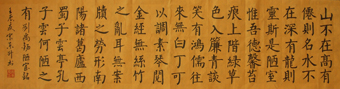 山不在高有
僊則名水不
在深有龍則
靈斯是陋室
惟吾德馨苔
痕上階綠草
色入簾青談
笑有鴻儒往
來無白丁可
以調素琴閱
金經無絲竹
之亂耳無案
牘之勞形南
陽諸葛廬西
蜀子雲亭孔
子云何陋之
有劉禹錫陋室銘